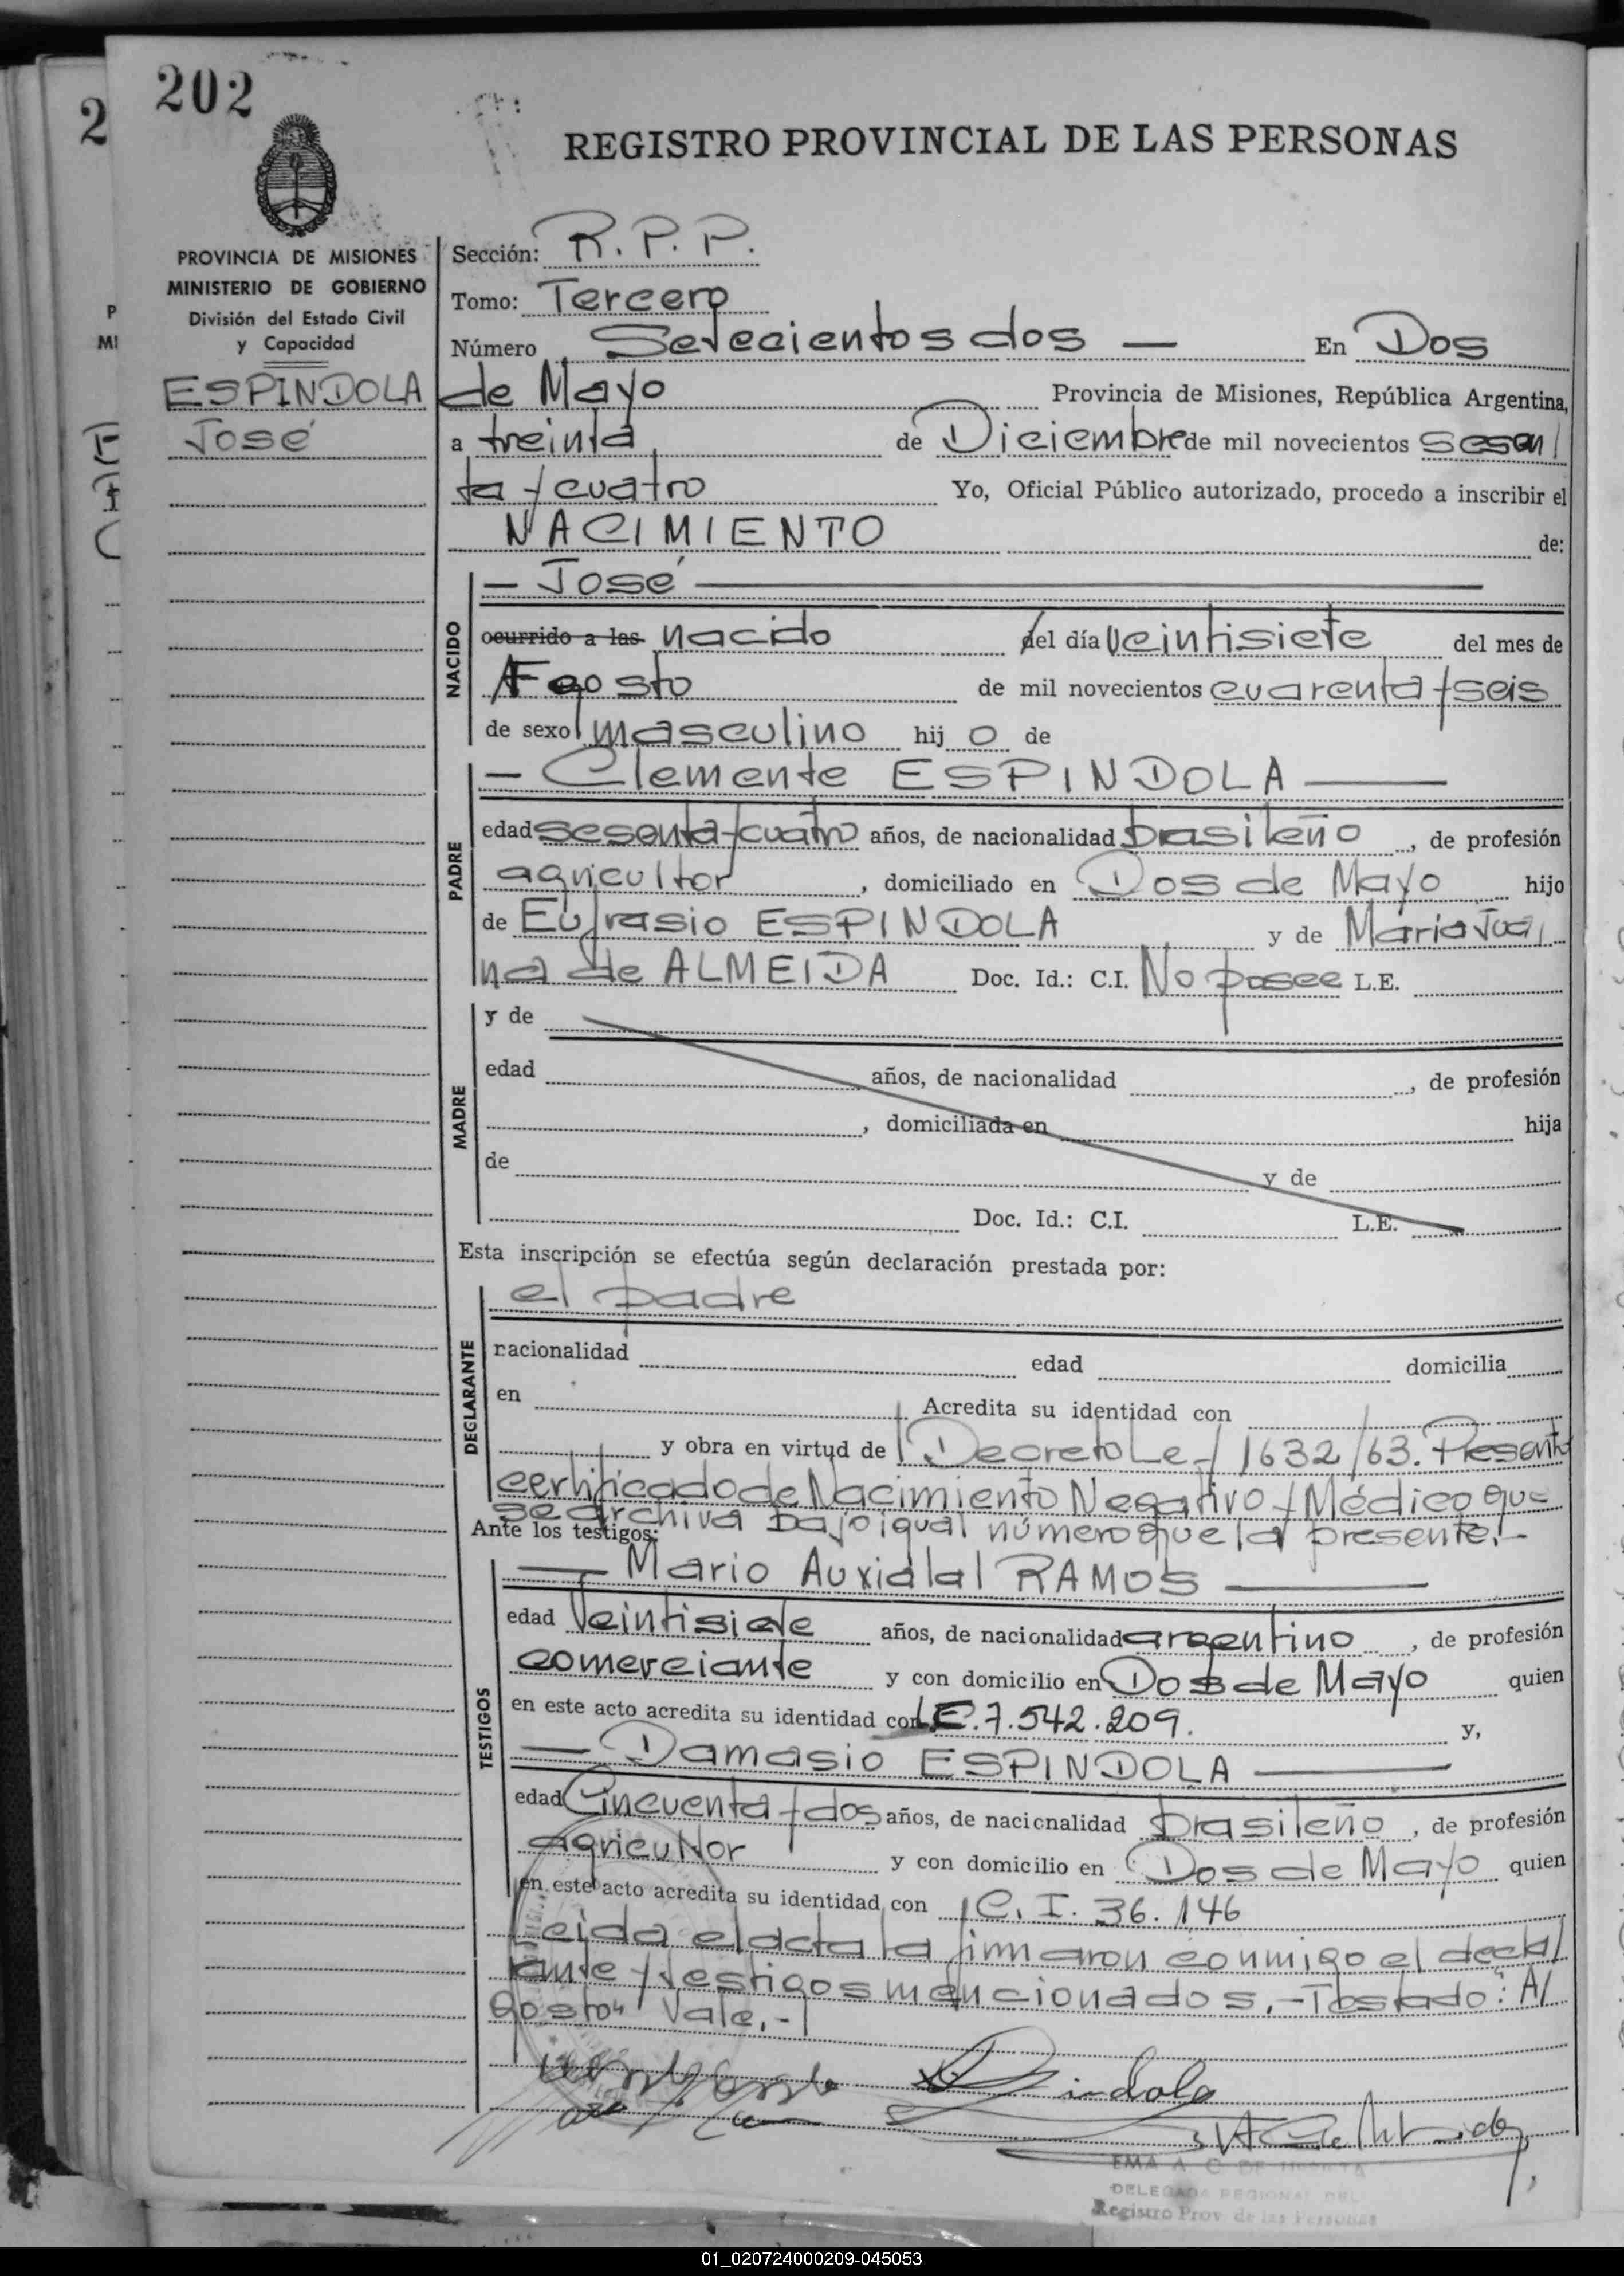 202
2
REGISTRO PROVINCIAL DE LAS PERSONAS
PROVINCIA DE MISIONES
MINISTERIO DE GOBIERNO
División del Estado Civil
y Capacidad
ESPINDOLA
José
P
MI
Sección: R. P. P.
Tomo: Tercero
Número Setecientos dos — En Dos
de Mayo Provincia de Misiones, República Argentina,
a treinta de Diciembre de mil novecientos sesen/
ta y cuatro Yo, Oficial Público autorizado, procedo a inscribir el
NACIMIENTO de:
NACIDO
— José —
ocurrido a las nacido del día veintisiete del mes de
Agosto de mil novecientos cuarenta y seis
de sexo masculino hij o de
PADRE
— Clemente ESPINDOLA —
edad sesenta y cuatro años, de nacionalidad brasileño, de profesión
agricultor, domiciliado en Dos de Mayo hijo
de Eufrasio ESPINDOLA y de Maria Jua/
na de ALMEIDA Doc. Id.: C.I. No posee L.E.
MADRE
y de
edad años, de nacionalidad , de profesión
, domiciliada en hija
de y de
Doc. Id.: C.I. L.E.
Esta inscripción se efectúa según declaración prestada por:
DECLARANTE
el padre
nacionalidad edad domicilia
en Acredita su identidad con
y obra en virtud de Decreto Ley 1632/63. Presentó
certificado de Nacimiento Negativo y Médico que
se archiva bajo igual número que la presente.-
Ante los testigos:
TESTIGOS
— Mario Auxidial RAMOS —
edad Veintisiete años, de nacionalidad argentino, de profesión
comerciante y con domicilio en Dos de Mayo quien
en este acto acredita su identidad con L.E. 7.542.209. y,
— Damasio ESPINDOLA —
edad Cincuenta y dos años, de nacionalidad brasileño, de profesión
agricultor y con domicilio en Dos de Mayo quien
en este acto acredita su identidad con C. I. 36.146
Leida el acta la firmaron conmigo el decla/
rante y testigos mencionados.- Testado: "A/
gosto" Vale.-
EMA A. C DE
DELEGADA REGIONAL DEL
Registro Prov. de las Personas
01_020724000209-045053